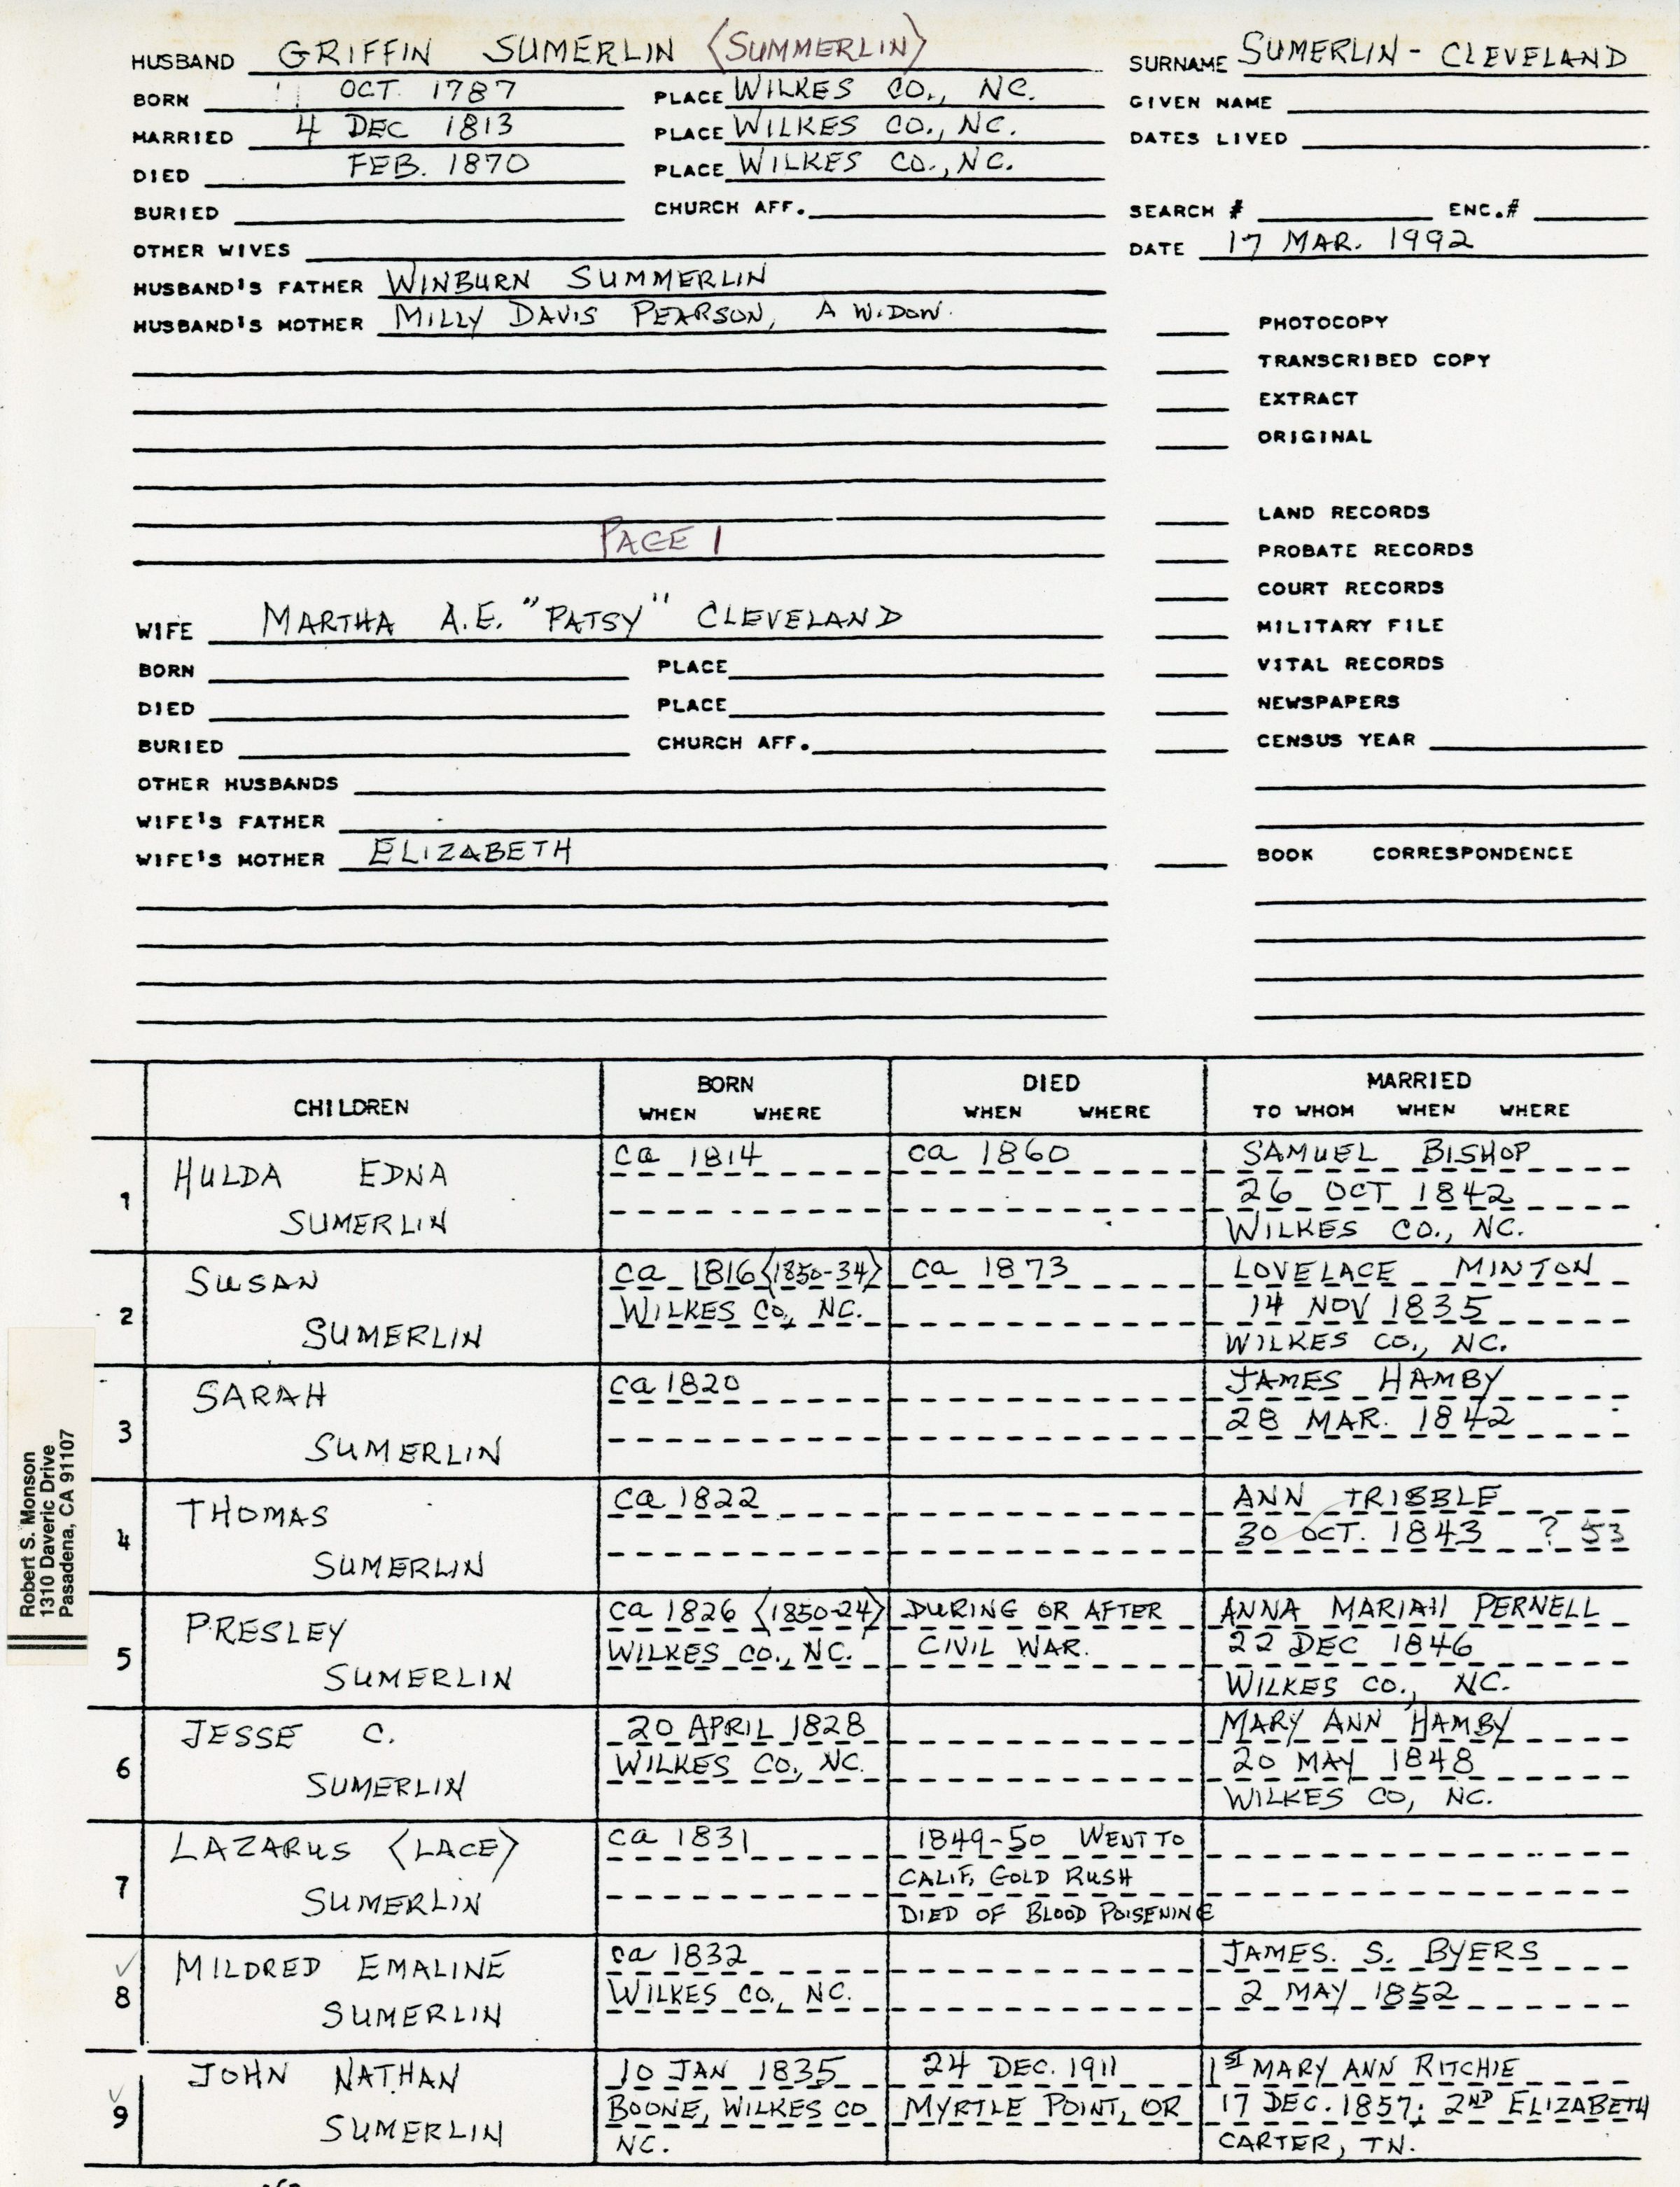 HUSBAND GRIFFIN SUMERLIN <SUMMERLIN>
BORN OCT. 1787 PLACE WILKES CO., NC.
MARRIED 4 DEC 1813 PLACE WILKES CO., NC.
DIED FEB. 1870 PLACE WILKES CO., NC.
BURIED CHURCH AFF.
OTHER WIVES
HUSBAND'S FATHER WINBURN SUMMERLIN
HUSBAND'S MOTHER MILLY DAVIS PEARSON, A WIDOW.
PAGE 1
WIFE MARTHA A.E. "PATSY" CLEVELAND
BORN PLACE
DIED PLACE
BURIED CHURCH AFF.
OTHER HUSBANDS
WIFE'S FATHER
WIFE'S MOTHER ELIZABETH
SURNAME SUMERLIN - CLEVELAND
GIVEN NAME
DATES LIVED
SEARCH # ENC.#
DATE 17 MAR. 1992
PHOTOCOPY
TRANSCRIBED COPY
EXTRACT
ORIGINAL
LAND RECORDS
PROBATE RECORDS
COURT RECORDS
MILITARY FILE
VITAL RECORDS
NEWSPAPERS
CENSUS YEAR
BOOK CORRESPONDENCE
CHILDREN
BORN
WHEN WHERE
DIED
WHEN WHERE
MARRIED
TO WHOM WHEN WHERE
1
HULDA EDNA
SUMERLIN
ca 1814
ca 1860
SAMUEL BISHOP
26 OCT 1842
WILKES CO., NC.
2
SUSAN
SUMERLIN
ca 1816 <1850-34>
WILKES CO., NC.
ca 1873
LOVELACE MINTON
14 NOV 1835
WILKES CO., NC.
3
SARAH
SUMERLIN
ca 1820
JAMES HAMBY
28 MAR. 1842
4
THOMAS
SUMERLIN
ca 1822
ANN TRIBBLE
30 OCT. 1843 ? 53
5
PRESLEY
SUMERLIN
ca 1826 <1850-24>
WILKES CO., NC.
DURING OR AFTER
CIVIL WAR.
ANNA MARIAH PERNELL
22 DEC 1846
WILKES CO., NC.
6
JESSE C.
SUMERLIN
20 APRIL 1828
WILKES CO., NC.
MARY ANN HAMBY
20 MAY 1848
WILKES CO, NC.
7
LAZARUS <LACE>
SUMERLIN
ca 1831
1849-50 WENT TO
CALIF. GOLD RUSH
DIED OF BLOOD POISENING
8
MILDRED EMALINE
SUMERLIN
ca 1832
WILKES CO., NC.
JAMES. S. BYERS
2 MAY 1852
9
JOHN NATHAN
SUMERLIN
10 JAN 1835
BOONE, WILKES CO
NC.
24 DEC. 1911
MYRTLE POINT, OR
1ST MARY ANN RITCHIE
17 DEC. 1857; 2ND ELIZABETH
CARTER, TN.
Robert S. Monson
1310 Daveric Drive
Pasadena, CA 91107